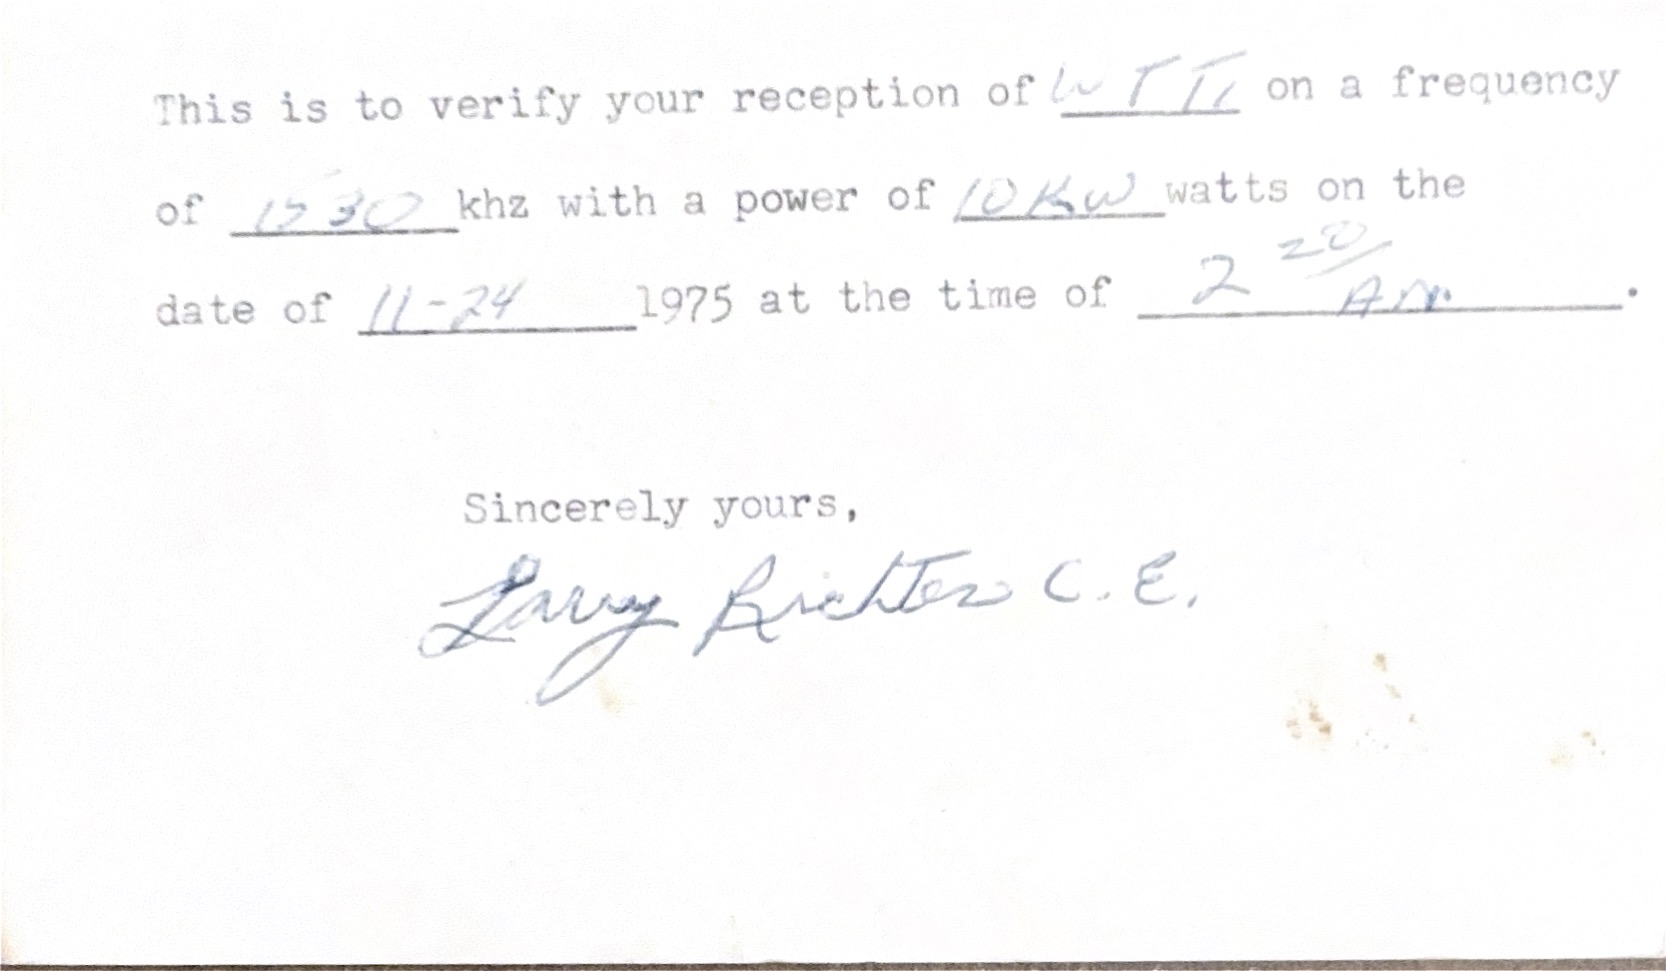 This is to verify your reception of WTTI on a frequency
of 1530 khz with a power of 10 KW watts on the
date of 11-24 1975 at the time of 2 20 A.M.
Sincerely yours,
Larry Richter C.E.